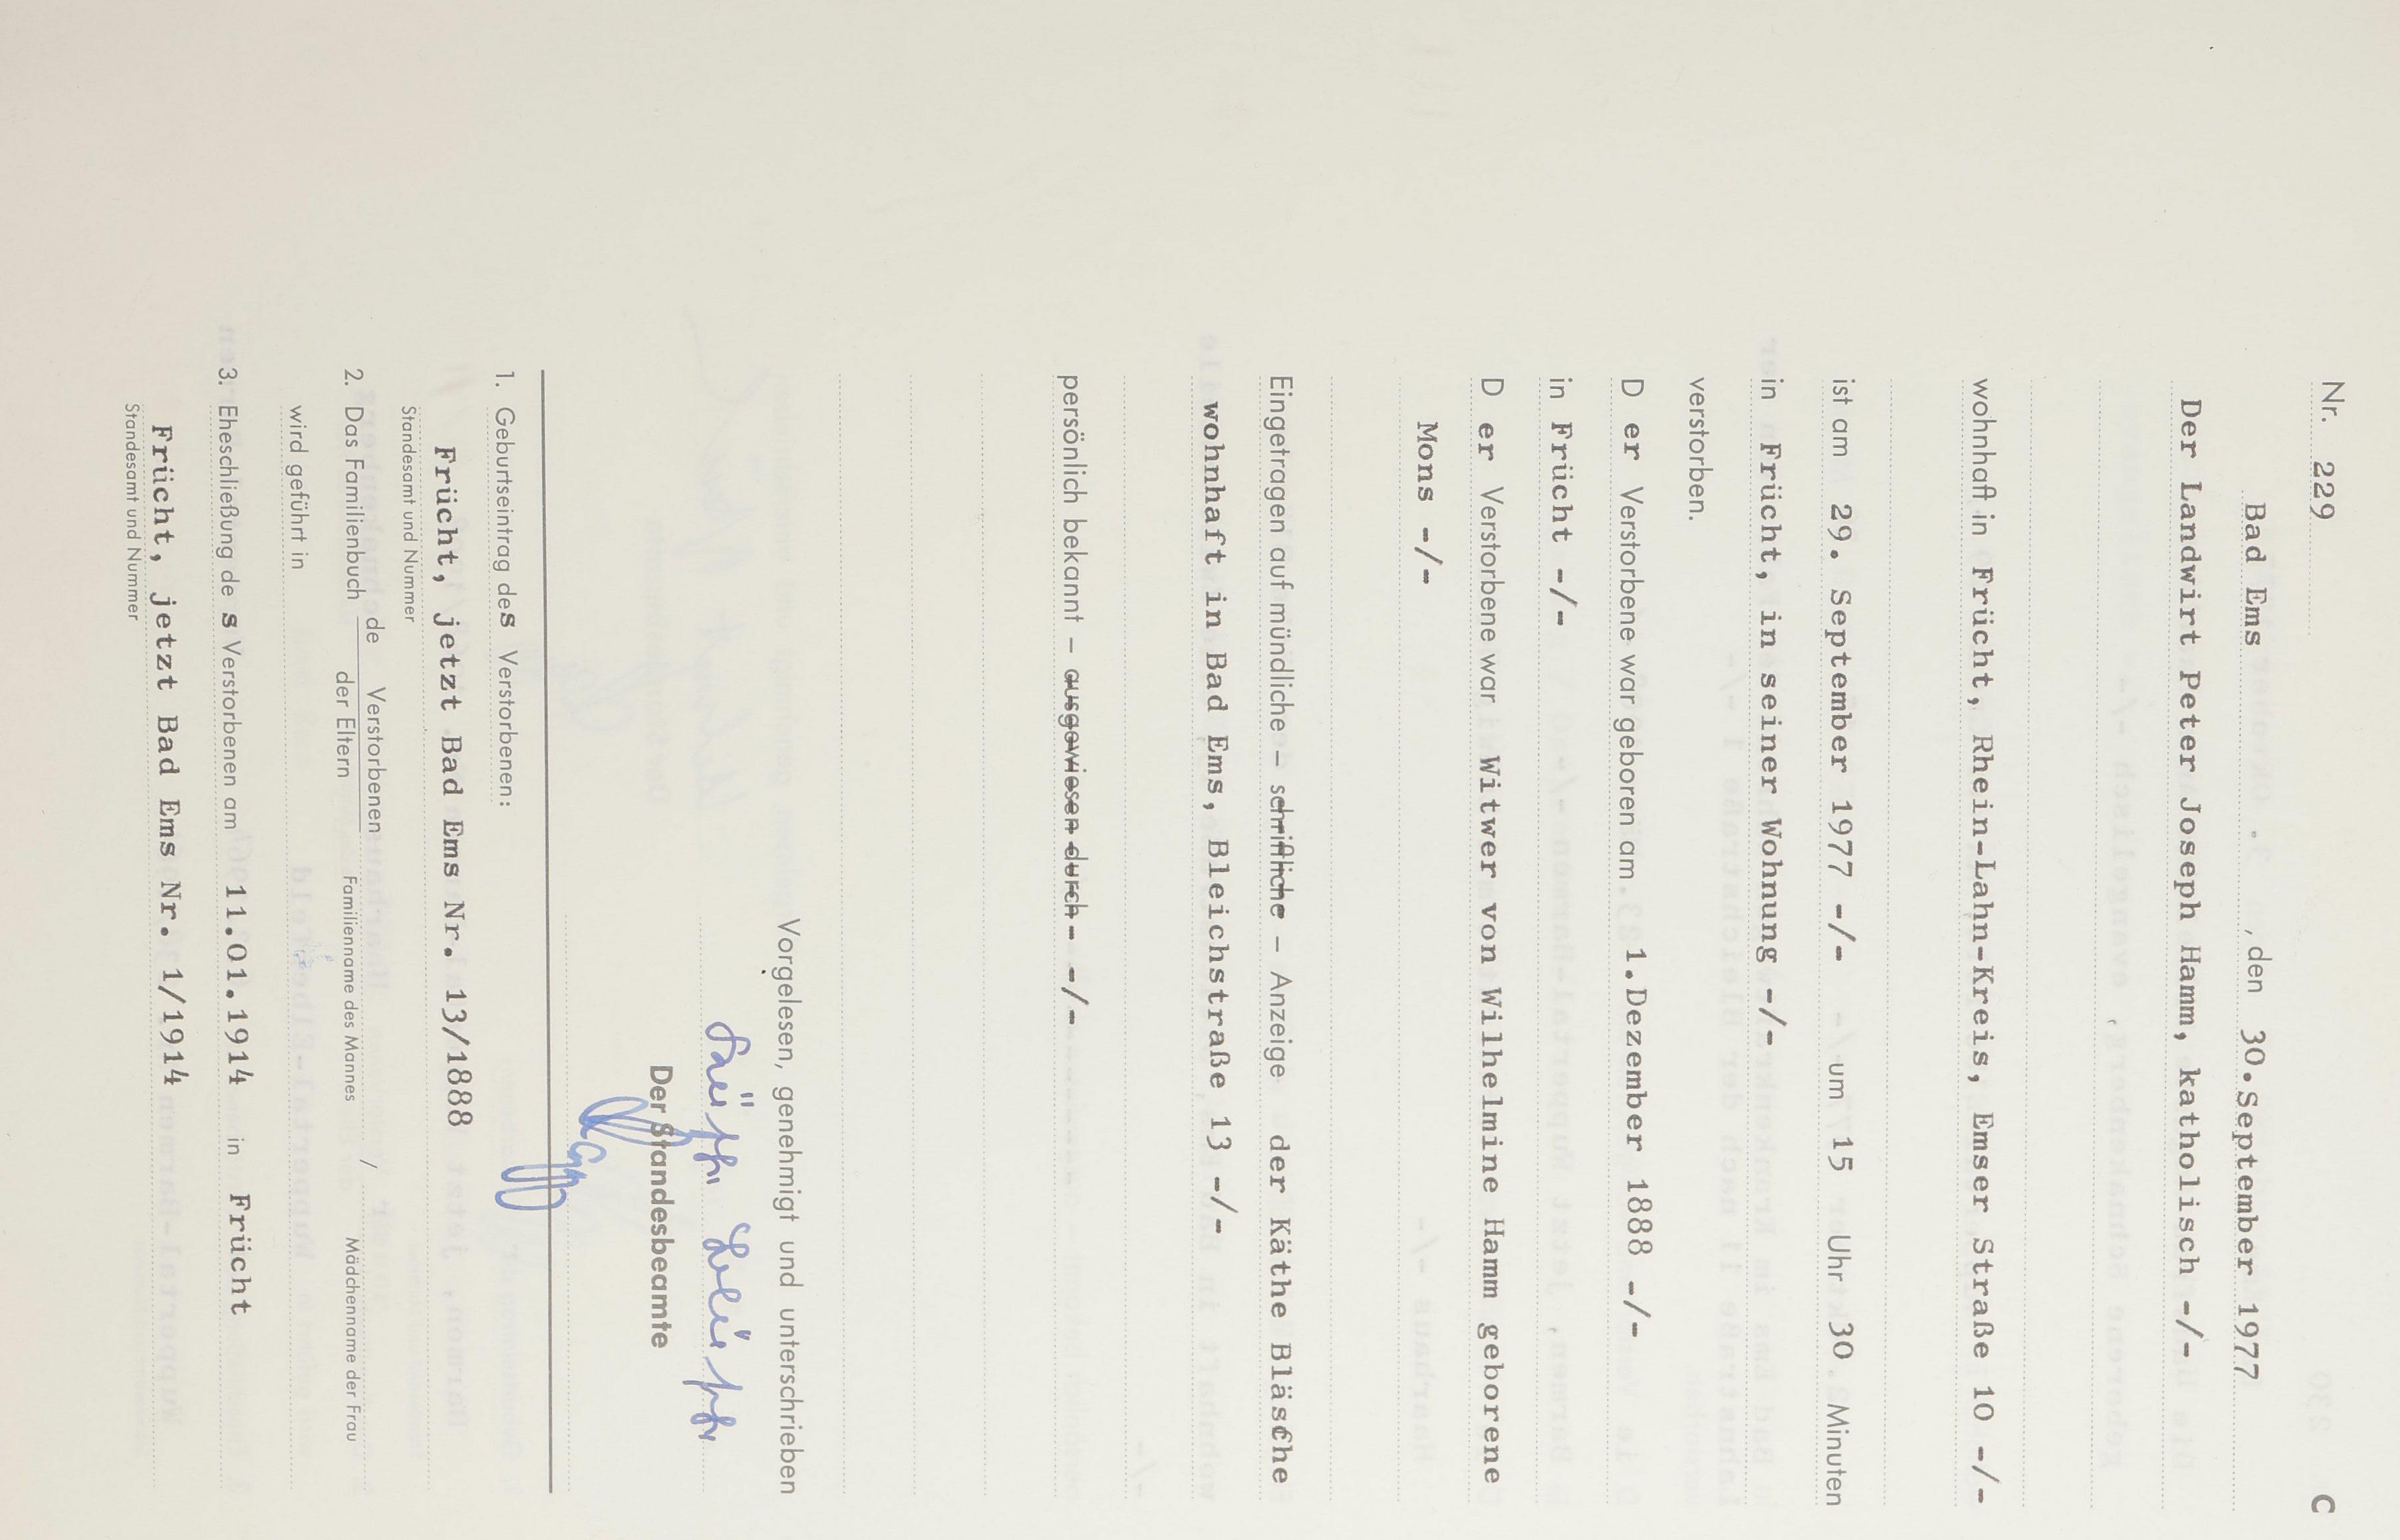 Nr. 229 C
Bad Ems, den 30.September 1977
Der Landwirt Peter Joseph Hamm, katholisch -/-
wohnhaft in Frücht, Rhein-Lahn-Kreis, Emser Straße 10 -/-
ist am 29. September 1977 -/- um 15 Uhr 30 Minuten
in Frücht, in seiner Wohnung -/-
verstorben.
D er Verstorbene war geboren am 1.Dezember 1888 -/-
in Frücht -/-
D er Verstorbene war Witwer von Wilhelmine Hamm geborene
Mons -/-
Eingetragen auf mündliche – schriftliche – Anzeige der Käthe Bläsche
wohnhaft in Bad Ems, Bleichstraße 13 -/-
persönlich bekannt – ausgewiesen durch - -/-
Vorgelesen, genehmigt und unterschrieben
Der Standesbeamte
1. Geburtseintrag des Verstorbenen:
Frücht, jetzt Bad Ems Nr. 13/1888
Standesamt und Nummer
2. Das Familienbuch de Verstorbenen / der Eltern Familienname des Mannes / Mädchenname der Frau
wird geführt in
3. Eheschließung de s Verstorbenen am 11.01.1914 in Frücht
Frücht, jetzt Bad Ems Nr. 1/1914
Standesamt und Nummer